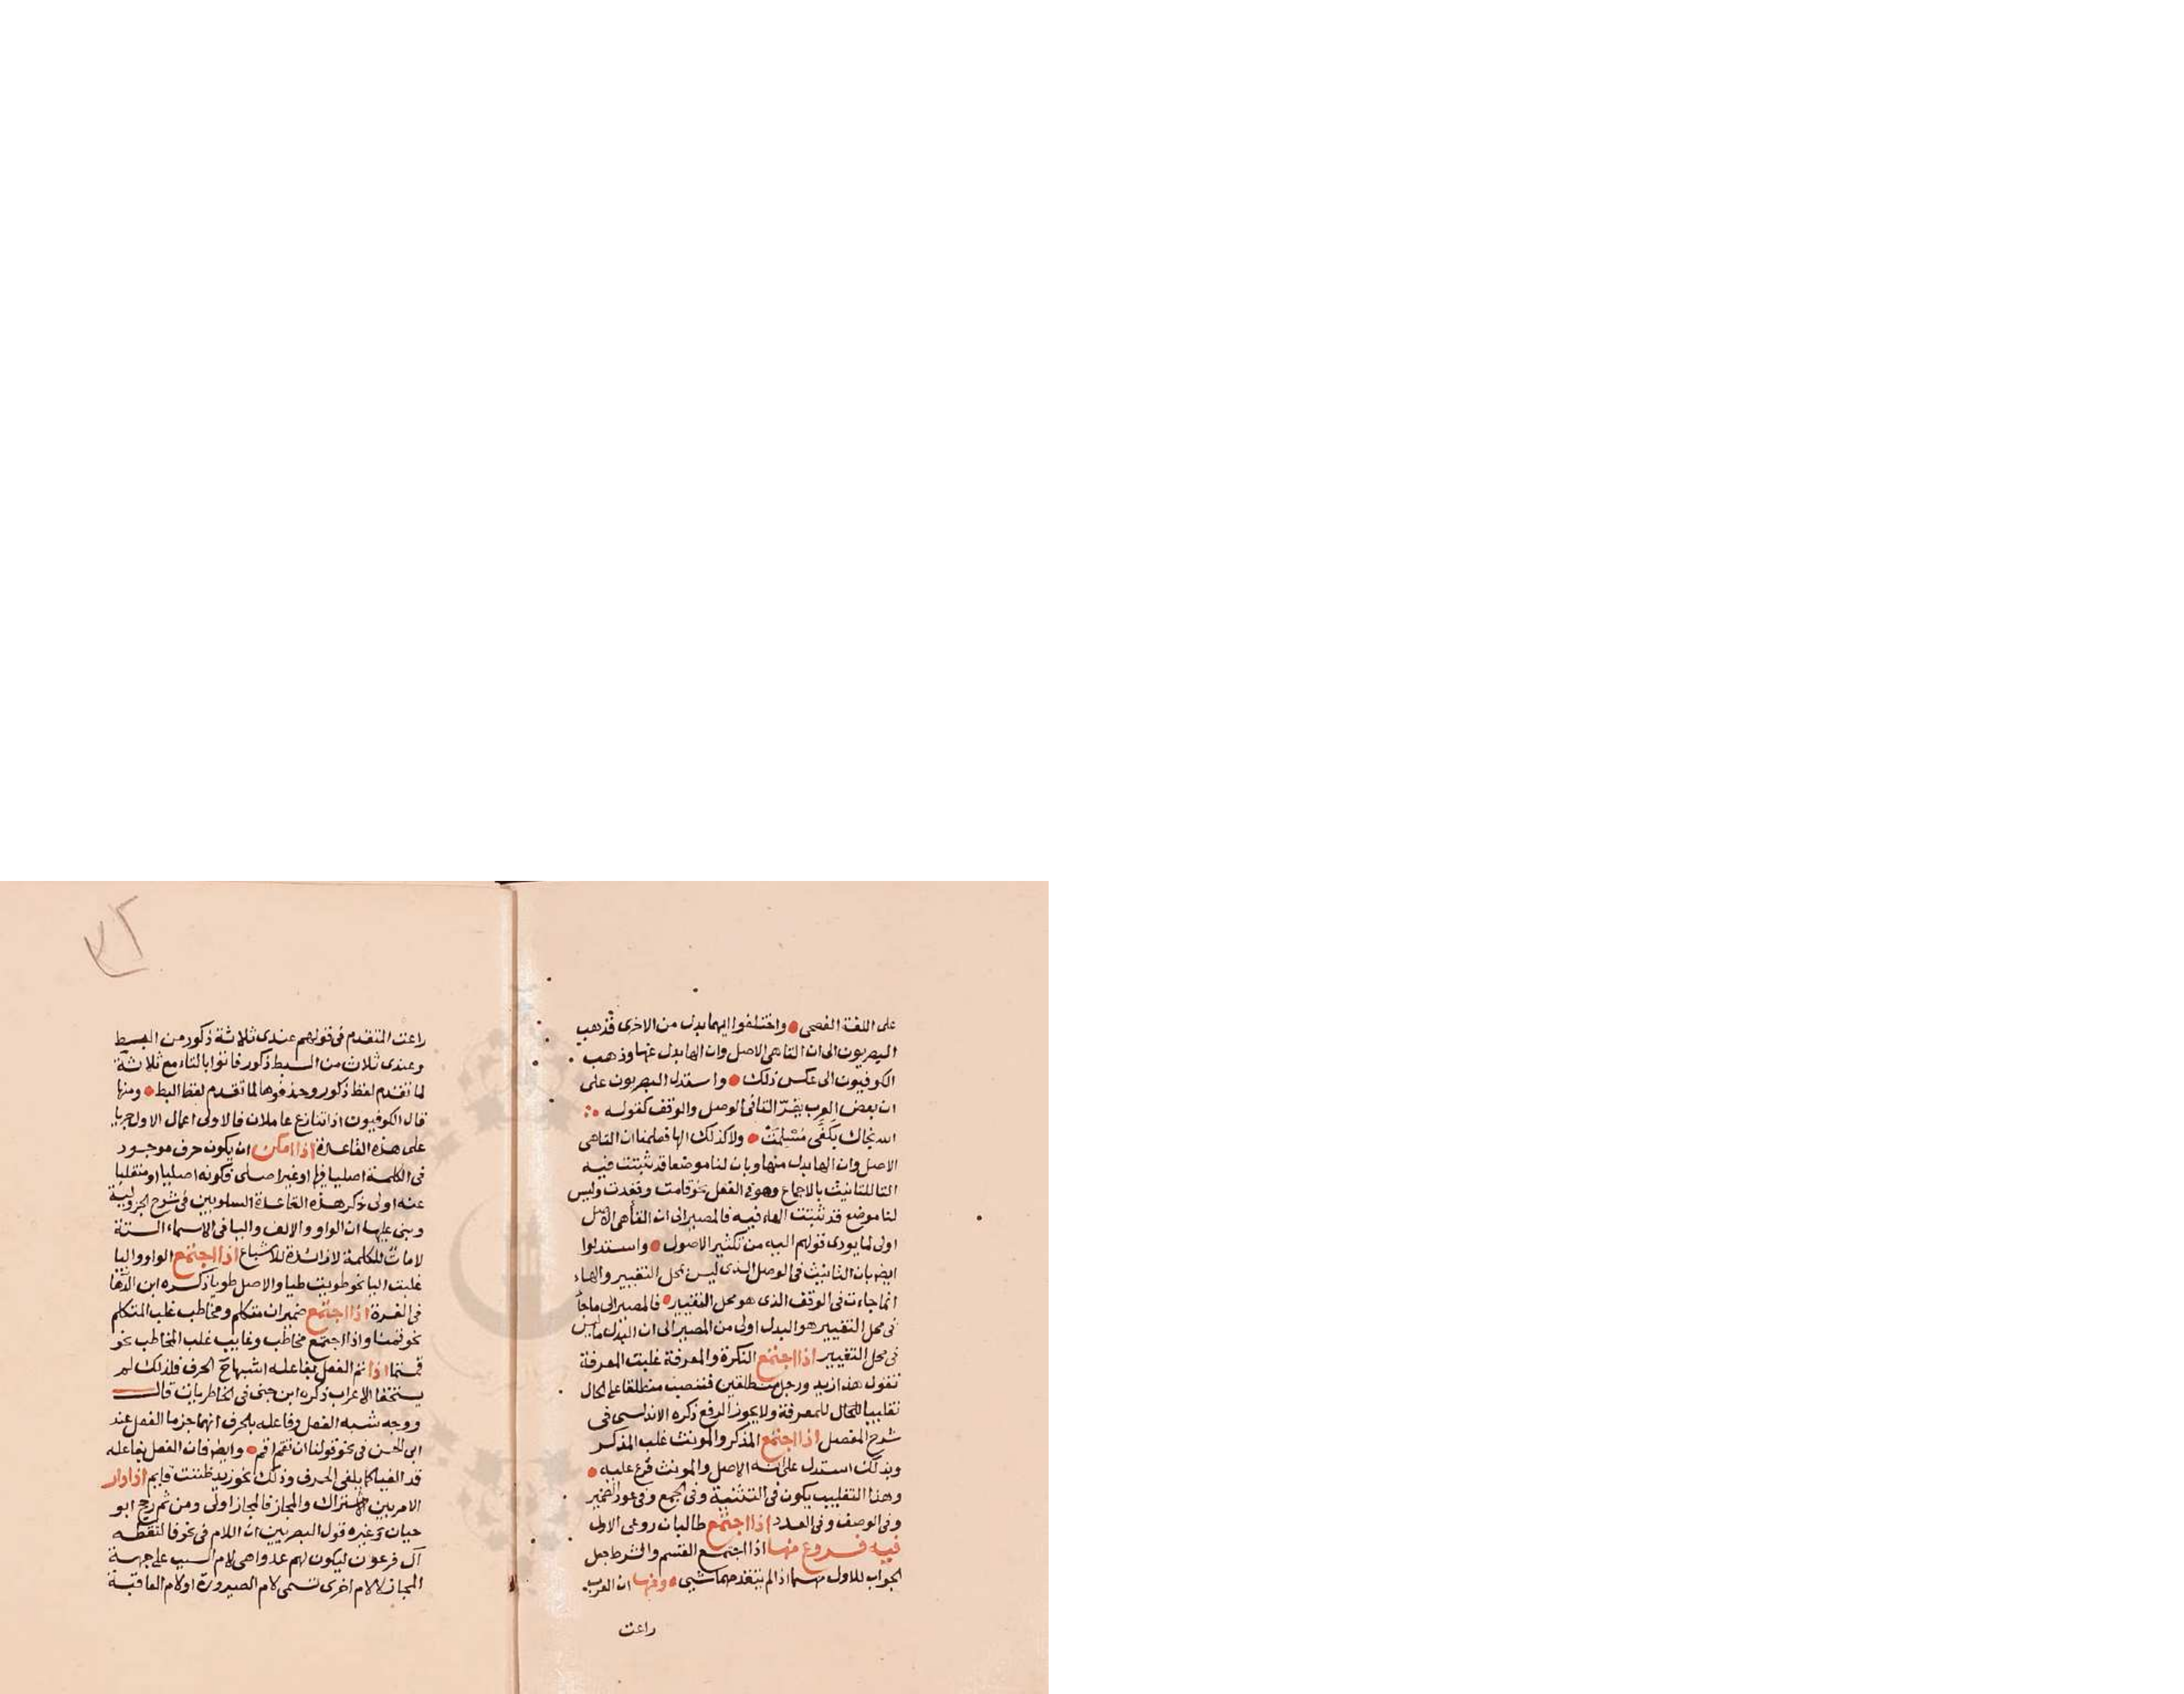 على اللغة الفصحى واختلفوا ايهما بدل من الاخرى فذهب
البصريون الى ان التا هى الاصل وان الها بدل عنها وذهب
الكوفيون الى عكس ذلك واستدل البصريون على
ان بعض العرب يقرّ التا فى الوصل والوقف كقوله
الله نجاك بكفى مَسْلِمَتْ ولا كذلك الها فعلمنا ان التا هى
الاصل وان الها بدل منها وبان لنا موضعا قد ثبتت فيه
التا للتانيث بالاجماع وهو فى الفعل نحو قامت وقعدت وليس
لنا موضع قد ثبتت الهاء فيه فالمصير الى ان التا هى الاصل
اولى لما يودى قولهم اليه من تكثير الاصول واستدلوا
ايضا بان التانيث فى الوصل الذى ليس بمحل التغيير والهاء
انما جاءت فى الوقف الذى هو محل التغيير فالمصير الى ما جا
فى محل التغيير هو البدل اولى من المصير الى ان البدل ما ليس
فى محل التغيير اذا اجتمع النكرة والمعرفة غلبت المعرفة
تقول هذا زيد ورجل منطلقين فتنصب منطلقا على الحال
تغليبا للحال للمعرفة ولا يجوز الرفع ذكره الاندلسى فى
شرح المفصل اذا اجتمع المذكر والمونث غلب المذكر
وبذلك استدل على انه الاصل والمونث فرع عليه
وهذا التغليب يكون فى التثنية وفى الجمع وفى عود الضمير
وفى الوصف وفى العدد اذا اجتمع طالبان روعى الاول
فيه فروع منها اذا اجتمع القسم والشرط جعل
الجواب للاول منهما اذا لم يتقدمهما شيى ومنها ان العرب
راعت
راعت المتقدم فى قولهم عندى ثلاثة ذكور من البط
وعندى ثلاث من البط ذكور فاتوا بالتاء مع ثلاثة
لما تقدم لفظ ذكور وحذفوها لما تقدم لفظ البط ومنها
قال الكوفيون اذا تنازع عاملان فالاولى اعمال الاول جريا
على هذه القاعدة اذا امكن ان يكون حرف موجود
فى الكلمة اصليا فيها او غير اصلى فكونه اصليا او منقلبا
عنه اولى ذكر هذه القاعدة السلوبين فى شرح الجزولية
وبنى عليها ان الواو والالف واليا فى الاسماء الستة
لاماتٌ للكلمة لا زائدة للاشباع اذا اجتمع الواو واليا
غلبت اليا نحو طويت طيا والاصل طويا ذكره ابن الدهان
فى الغرة اذا اجتمع ضميران متكلم ومخاطب غلب المتكلم
نحو قمنا واذا اجتمع مخاطب وغايب غلب المخاطب نحو
قمتما اذا تم الفعل بفاعله اشبها الحرف فلذلك لم
يستحقا الاعراب ذكره ابن جنى فى الخاطريات قال
ووجه شبه الفعل وفاعله بالحرف انهما جزما الفعل عند
ابى الحسن فى نحو قولنا ان تقم اقم وايضا فان الفعل بفاعله
قد الغيا كما يلغى الحرف وذلك نحو زيد ظننت قايم اذا دار
الامر بين الاشتراك والمجاز فالمجاز اولى ومن ثم رجح ابو
حيان وغيره قول البصريين ان اللام فى نحو فالتقطه
آل فرعون ليكون لهم عدوا هى لام السبب على جهة
المجاز لا لام اخرى تسمى لام الصيرورة او لام العاقبة